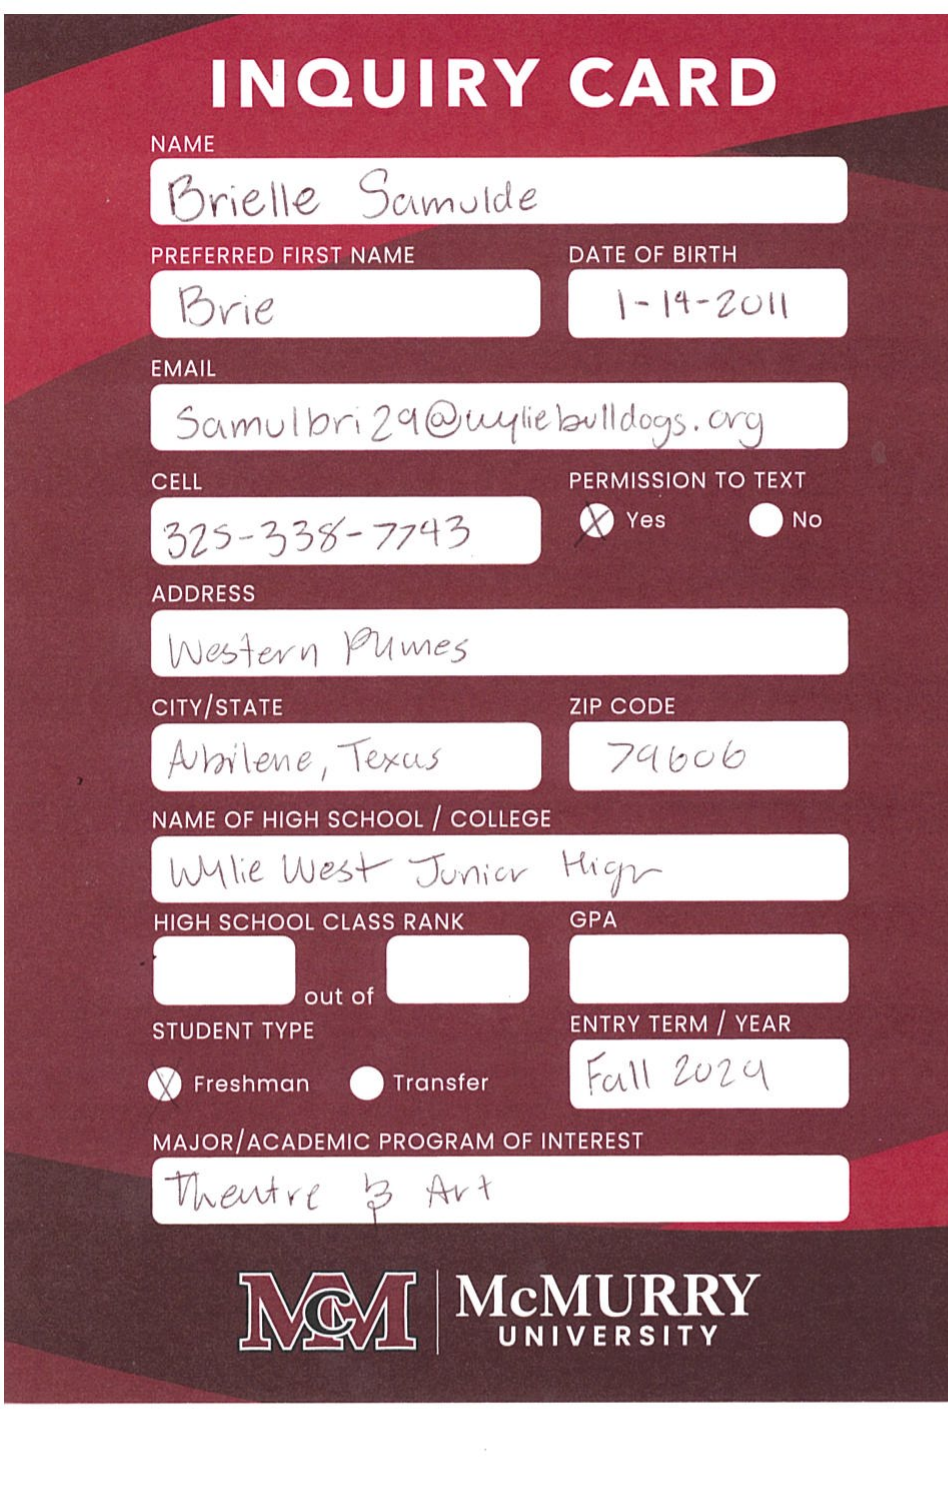 INQUIRY CARD
NAME
Brielle Samulde
PREFERRED FIRST NAME
DATE OF BIRTH
Brie
1-14-2011
EMAIL
Samulbri29@wyliebulldogs.org
CELL
PERMISSION TO TEXT
325-338-7743
Yes
No
ADDRESS
Western Plumes
CITY/STATE
ZIP CODE
Abilene, Texas
79606
NAME OF HIGH SCHOOL / COLLEGE
Wylie West Junior High
HIGH SCHOOL CLASS RANK
GPA
out of
STUDENT TYPE
ENTRY TERM / YEAR
Freshman
Transfer
Fall 2029
MAJOR/ACADEMIC PROGRAM OF INTEREST
Theatre & Art
McM
McMURRY
UNIVERSITY